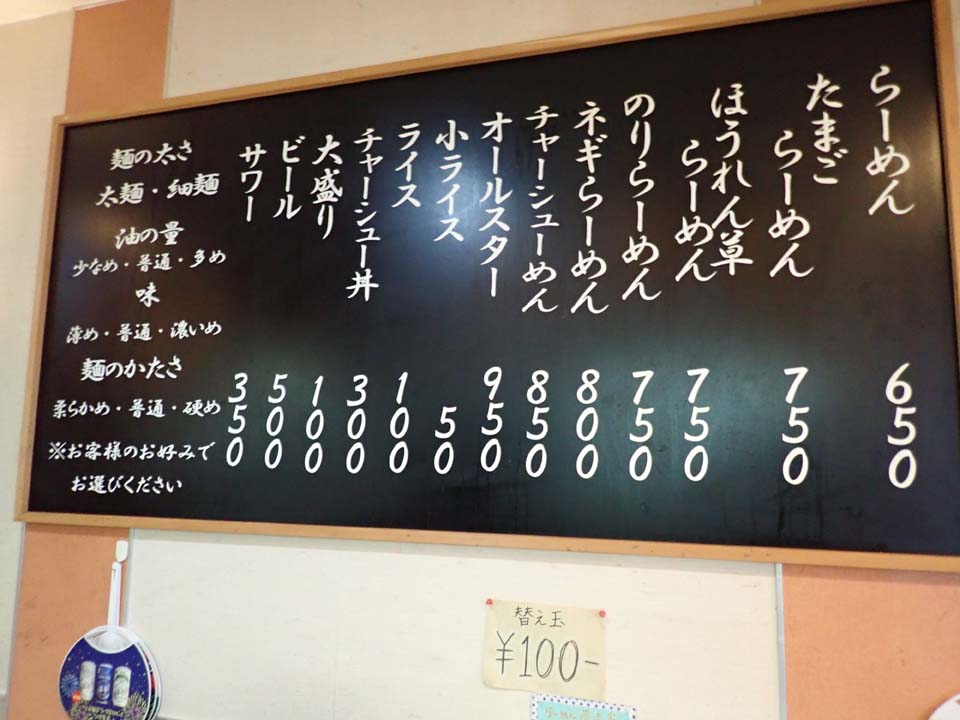 らーめん
650
たまご
らーめん
750
ほうれん草
らーめん
750
のりらーめん
750
ネギらーめん
800
チャーシューめん
850
オールスター
950
小ライス
50
ライス
100
チャーシュー丼
300
大盛り
100
ビール
500
サワー
350
麺の太さ
太麺・細麺
油の量
少なめ・普通・多め
味
薄め・普通・濃いめ
麺のかたさ
柔らかめ・普通・硬め
※お客様のお好みで
お選びください
替え玉
¥100-